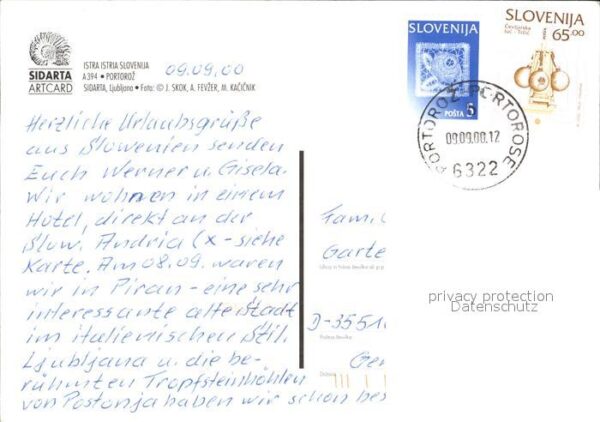 SIDARTA
ARTCARD
ISTRA ISTRIA SLOVENIJA
A394 • PORTOROŽ
SIDARTA, Ljubljana • Foto: © J. SKOK, A. FEVŽER, M. KAČIČNIK
09.09.00
Herzliche Urlaubsgrüße
aus Slowenien senden
Euch Werner u. Gisela.
Wir wohnen in einem
Hotel, direkt an der
Slow. Andria (x - siehe
Karte. Am 08.09. waren
wir in Piran - eine sehr
interessante alte Stadt
im italienischen Stil.
Ljubljana u. die be-
rühmten Tropfsteinhöhlen
von Postonja haben wir schon bes
SLOVENIJA
POŠTA 5
SLOVENIJA
65.00
PORTOROŽ-PORTOROSE
09.09.00.12
6322
Fam.
Garte
D-3551
Ger
privacy protection
Datenschutz